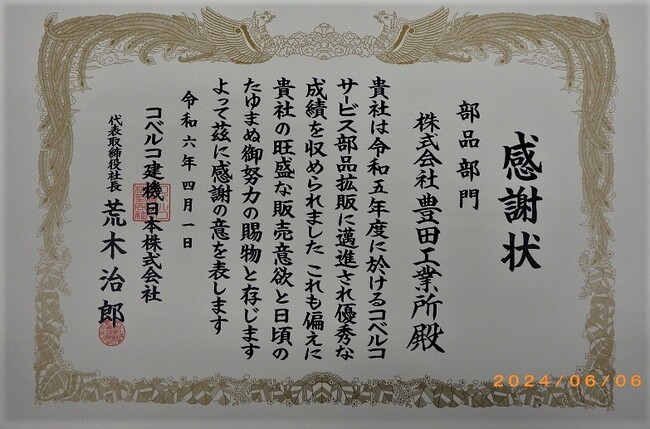 感謝状
部品部門
株式会社豊田工業所殿
貴社は令和五年度に於けるコベルコ
サービス部品拡販に邁進され優秀な
成績を収められました これも偏えに
貴社の旺盛な販売意欲と日頃の
たゆまぬ御努力の賜物と存じます
よって茲に感謝の意を表します
令和六年四月一日
コベルコ建機日本株式会社
代表取締役社長 荒木治郎
2024/06/06